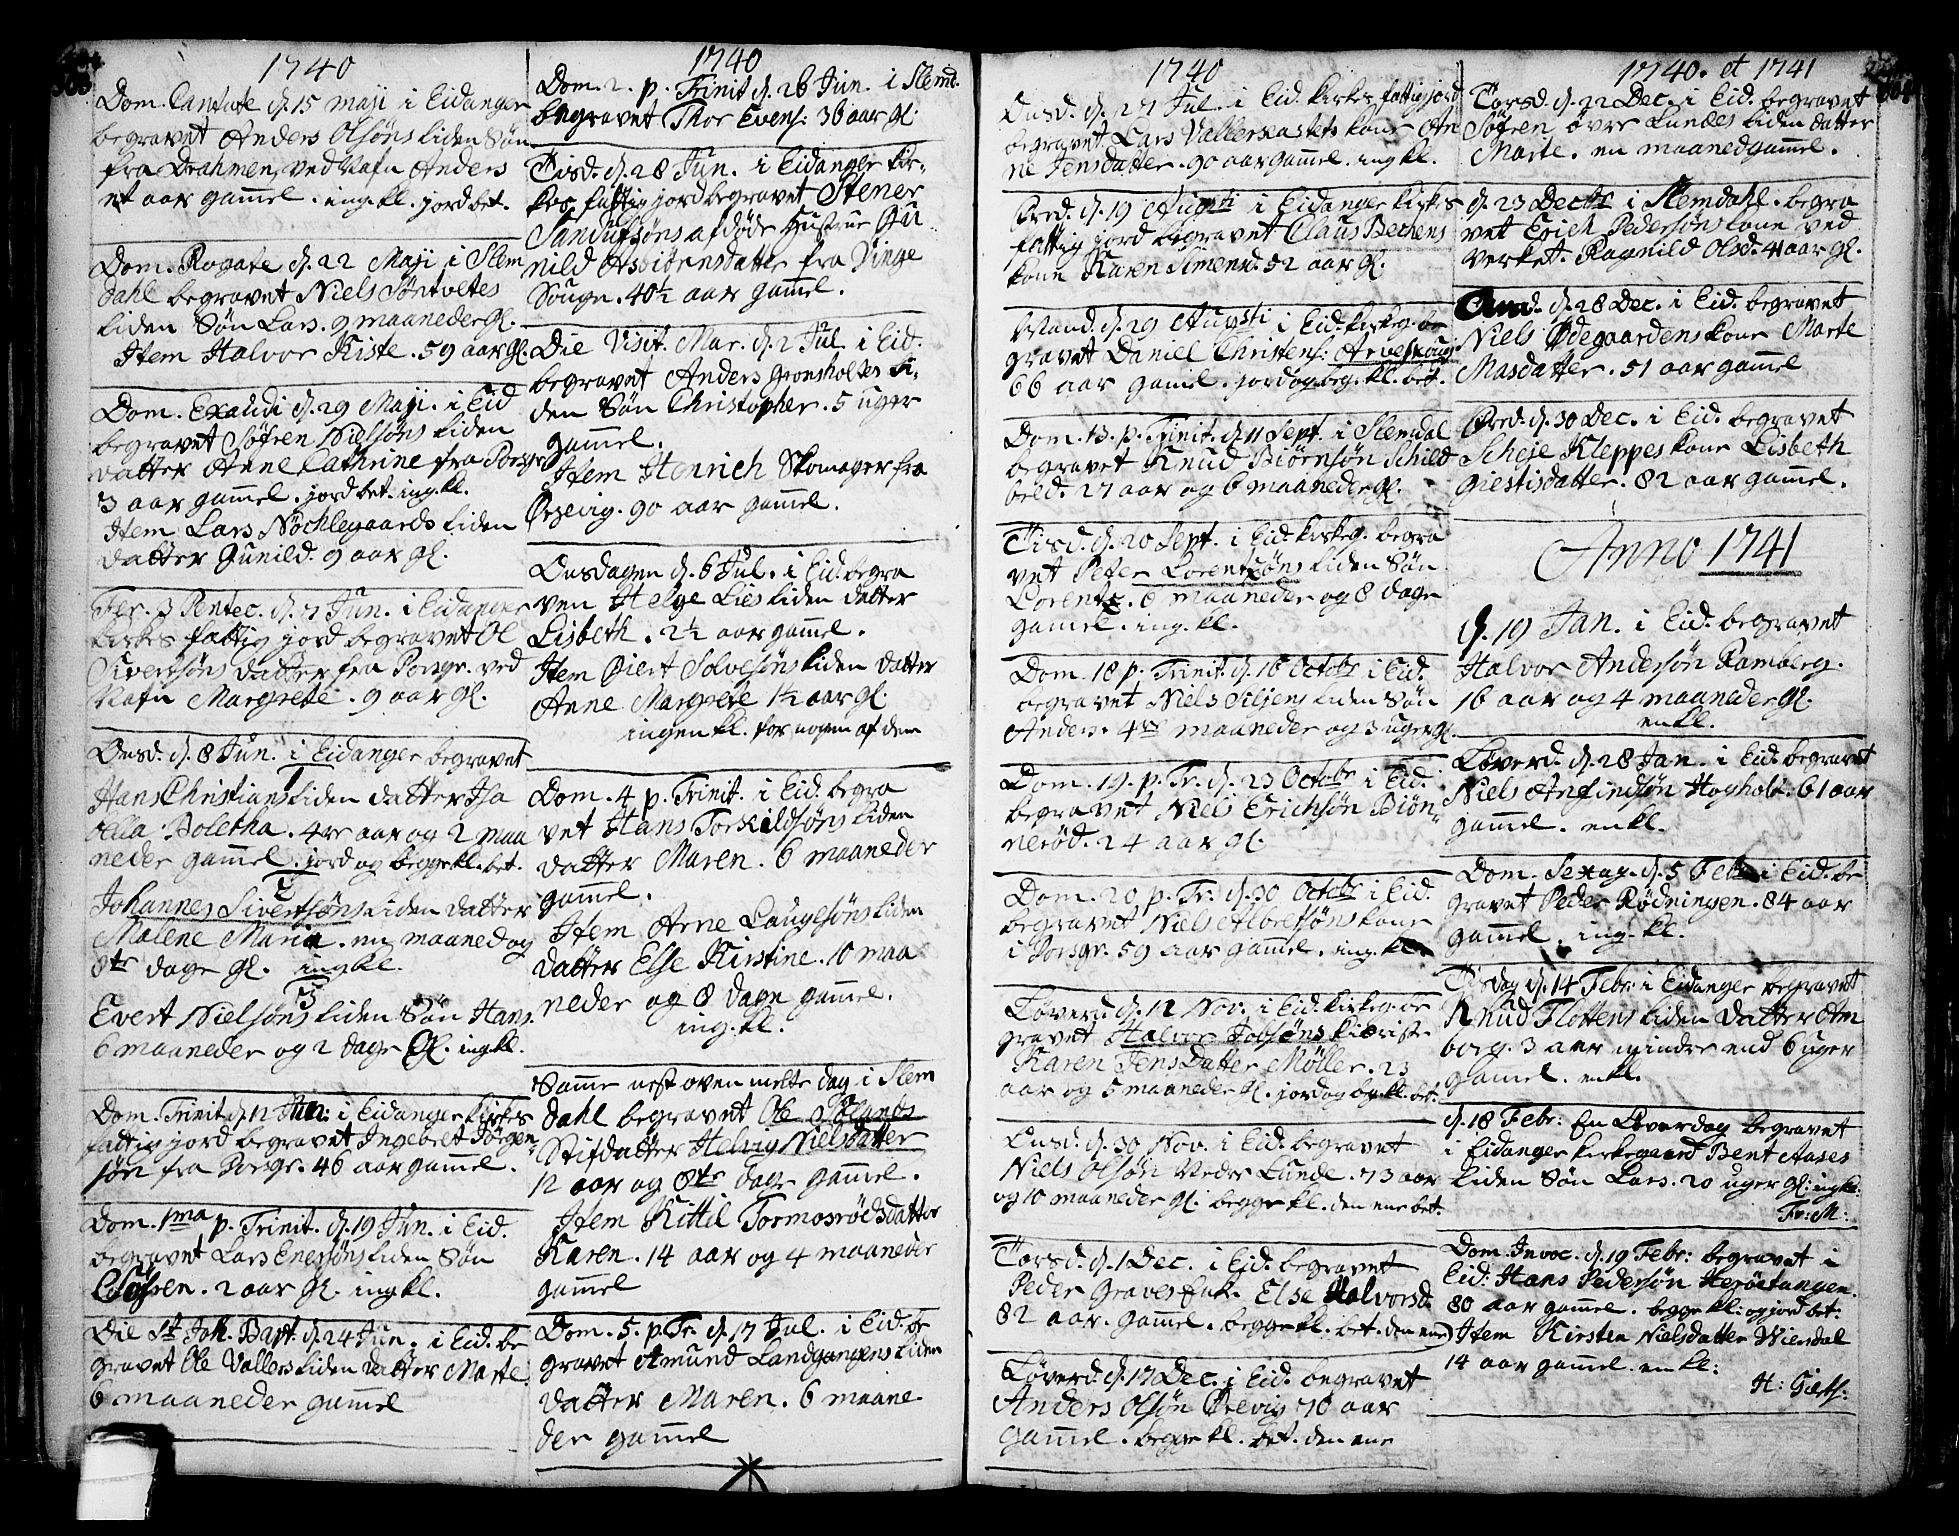 1740
Dom. Cantate d. 15 maji i Eidanger
begravet Anders Olsøns liden Søn
fra Drahmen, ved Nafn Anders
et aar gammel. ing. kl. jord bet.
Dom. Rogate d. 22 Maji i Slem
dahl begravet Niels Søntvetes
liden Søn Lars. 9 maaneder gl.
Item Halvor Kiste. 59 aar gl.
Dom. Exaudi d. 29 Maji. i Eid
begravet Søfren Nielsøns liden
datter Anne Cathrine fra Porsgr
3 aar gammel. jord bet. ing. kl.
Item Lars Nøchlegaards liden
datter Gunild. 9 aar gl.
Fer. 3 Pentec. d. 7 Jun. i Eidanger
Kirkes fattig jord begravet Ol
Sivertsøns datter fra Porsgr. ved
Nafn Margrete. 9 aar gl.
Onsd. d. 8 Jun. i Eidanger begravet
1
Hans Christians liden datter Isa
bella Boletha. 4re aar og 2 maa
neder gammel. jord og begge kl. bet.
2
Johannes Sivertsøns liden datter
Malene Maria. en maaned og
8te dage gl. ing kl.
3
Evert Nielsøns liden Søn Hans.
6 maaneder og 2 dage gl. ing kl.
Dom. Trinit. d. 12 Jun: i Eidanger Kirkes
fattig jord begravet Ingebret Jørgen
søn fra Porsgr. 46 aar gammel.
Dom. 1ma p. Trinit. d. 19 Jun. i Eid.
begravet Lars Enersøns liden Søn
Søfren. 2 aar gl. ing kl.
Die St. Joh. Bapt. d. 24 Jun. i Eid. be
gravet Ole Vallers liden datter Marte.
6 maaneder gammel
1740
Dom. 2. p. Trinit d. 26 Jun. i Slemd.
begravet Thor Evens: 36 aar gl.
Tisd. d. 28 Jun. i Eidanger Kir-
kes fattig jord begravet Stener
Sandufsøns afdøde Hustrue Gu
nild Asbiørnsdatter fra Vinge
Sougn. 40½ aar gammel.
Die Visit. Mar. d. 2 Jul. i Eid.
begravet Anders Grønsholtes li-
den Søn Christopher. 5 uger
gammel.
Item Henrich Skomager fra
Ørzevig. 90 aar gammel.
Onsdagen d. 6 Jul. i Eid. begra
ven Helge Lies liden datter
Lisbeth. 2½ aar gammel.
Item Giert Solvesøns liden datter
Anne Margrete 1½ aar gl.
ingen kl. for nogen af dem
Dom. 4 p. Trinit. i Eid. begra
vet Hans Torkildsøns liden
datter Maren. 6 maaneder
gammel.
Item Arne Laugesøns liden
datter Else Kirstine. 10 maa
neder og 8 dage gammel.
ing. kl.
Samme nest oven melte dag i Slem
dahl begravet Ole Ørlands
Stifdatter Helvig Nielsdatter
12 aar og 8te dage gammel.
Item Kittil Tormosrødsdatter
Karen. 14 aar og 4 maaneder
gammel
Dom. 5. p. Tr. d. 17 Jul. i Eid. be
gravet Amund Landgangens liden
datter Maren. 6 maane-
der gammel
1740
Onsd. d. 27 Jul. i Eid. kirkes fattig jord
begravet Lars Vallereiastets kone An
ne Jensdatter. 90 aar gammel. ing kl.
Fred. d. 19 Augsti i Eidanger kirkes
fattig jord begravet Claus Beckens
kone Karen Simensd. 52 aar gl.
Mand. d. 29 Augsti i Eid. kirkeg. be
gravet Daniel Christens: Arveskoug
66 aar gaml. jord og beg. kl. bet.
Dom. 13. p. Trinit. d. 11 Sept. i Slemdal
begravet Knud Biørnsøn Schild
bæld. 27 aar og 6 maaneder gl.
Tisd. d. 20 Sept. i Eid kirkeg. begra
vet Peter Lorentzøns liden Søn
Lorentz. 6 maaneder og 8 dage
gammel. ing. kl.
Dom. 18 p. Trinit. d. 16 Octobr i Eid.
begravet Niels Siljens liden Søn
Anders. 4re maaneder og 3 uger gl.
Dom. 19. p. Tr. d. 23 Octobr i Eid.
begravet Niels Erichsøn Biøn-
nerød. 24 aar gl.
Dom. 20 p. Tr. d. 30 Octobr i Eid.
begravet Niels Alvretsøns kone
i Porsgr. 59 aar gammel. ing. kl.
Løverd. d. 12 Nov. i Eid. kirkeg. be
gravet Halvor Jobsøns kiæriste
Karen Jens Datter Møller. 23
aar og 5 maaneder gl. jord og beg kl. bet.
Onsd. d. 30 Nov. i Eid. begravet
Niels Olsøn Neder Lunde. 73 aar
og 10 maaneder gl. begge kl. den ene bet.
Torsd. d. 1 Dec. i Eid. begravet
Peder Graves Enk. Else Halvorsd.
82 aar. gammel. begge kl. bet. den ene
Løverd. d. 17 Dec. i Eid. begravet
Anders Olsøn Ørevig 70 aar
gammel. begge kl. bet. den ene
1740. et 1741
Torsd. d. 22 Dec. i Eid. begravet
Søfren øvre Lundes liden datter
Marte. en maaned gammel.
d. 23 Decbr i Slemdahl. begra
vet Erich Pedersøns kone ved
Verket. Ragnild Olsd. 41 aar gl.
Onsd. d. 28 Dec. i Eid. begravet
Niels Ødegaardens kone Marte
Masdatter. 51 aar gammel
Fred. d. 30 Dec. i Eid. begravet
Scheje Kleppes kone Lisbeth
Giestisdatter. 82 aar gammel.
Anno 1741
d. 19 Jan. i Eid. begravet
Halvor Andersøn Ramberg.
16 aar og 4 maaneder gl.
en kl.
Løverd. d. 28 Jan. i Eid. begravet
Niels Anfindsøn Hogholt. 61 aar
gammel. en kl.
Dom. Sexag. d. 5 Febr i Eid. be
gravet Peder Rødningen. 84 aar
gammel. ing. kl.
Tisdag d. 14 Febr: i Eidanger begravet
Knud Flottens liden datter Am
borg. 3 aar mindre end 6 uger
gammel. en kl.
d. 18 Febr: En Løverdag begravet
i Eidanger kirkegaard Bent Aases
liden Søn Lars. 20 uger gl: ing kl:
Fr: M:
Dom. Invoc. d. 19 Febr: begravet i
Eid: Hans Pedersøn Herøetangen.
80 aar gammel. begge kl: og jord bet.
Item Kirsten Nielsdatter Wiersdal
14 aar gammel. en kl:
H: Giertf: